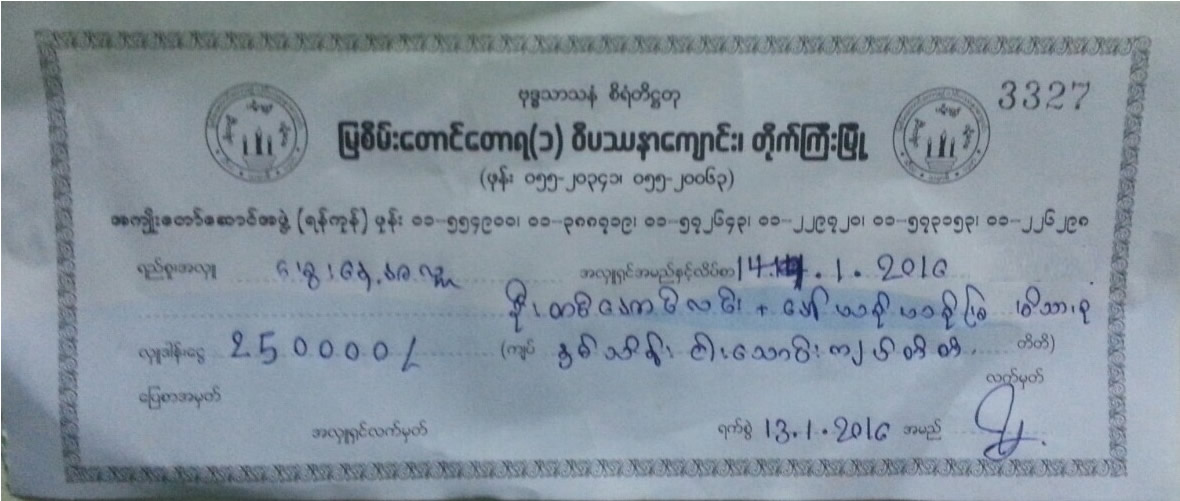 ဗုဒ္ဓသာသနံ စိရံတိဋ္ဌတု
3327
မြစိမ်းတောင်တောရ(၁) ဝိပဿနာကျောင်း၊ တိုက်ကြီးမြို့
(ဖုန်း ၀၅၅-၂၀၃၄၁၊ ၀၅၅-၂၀၀၆၃)
အကျိုးတော်ဆောင်အဖွဲ့ (ရန်ကုန်) ဖုန်း ၀၁-၅၅၄၉၀၀၊ ၀၁-၃၈၈၇၁၉၊ ၀၁-၅၇၂၆၄၃၊ ၀၁-၂၂၉၇၂၀၊ ၀၁-၅၇၃၁၅၃၊ ၀၁-၂၂၆၂၉၈
ရည်စူးအလှူ မွေးနေ့အလှူ အလှူရှင်အမည်နှင့်လိပ်စာ 14.1.2016
ဦးတင်အောင်လင်း + ဒေါ် မိသားစု
လှူဒါန်းငွေ 250000/ (ကျပ် နှစ်သိန်းငါးသောင်းကျပ်တိတိ တိတိ)
ပြေစာအမှတ် လက်မှတ်
အလှူရှင်လက်မှတ် ရက်စွဲ 13.1.2016 အမည်